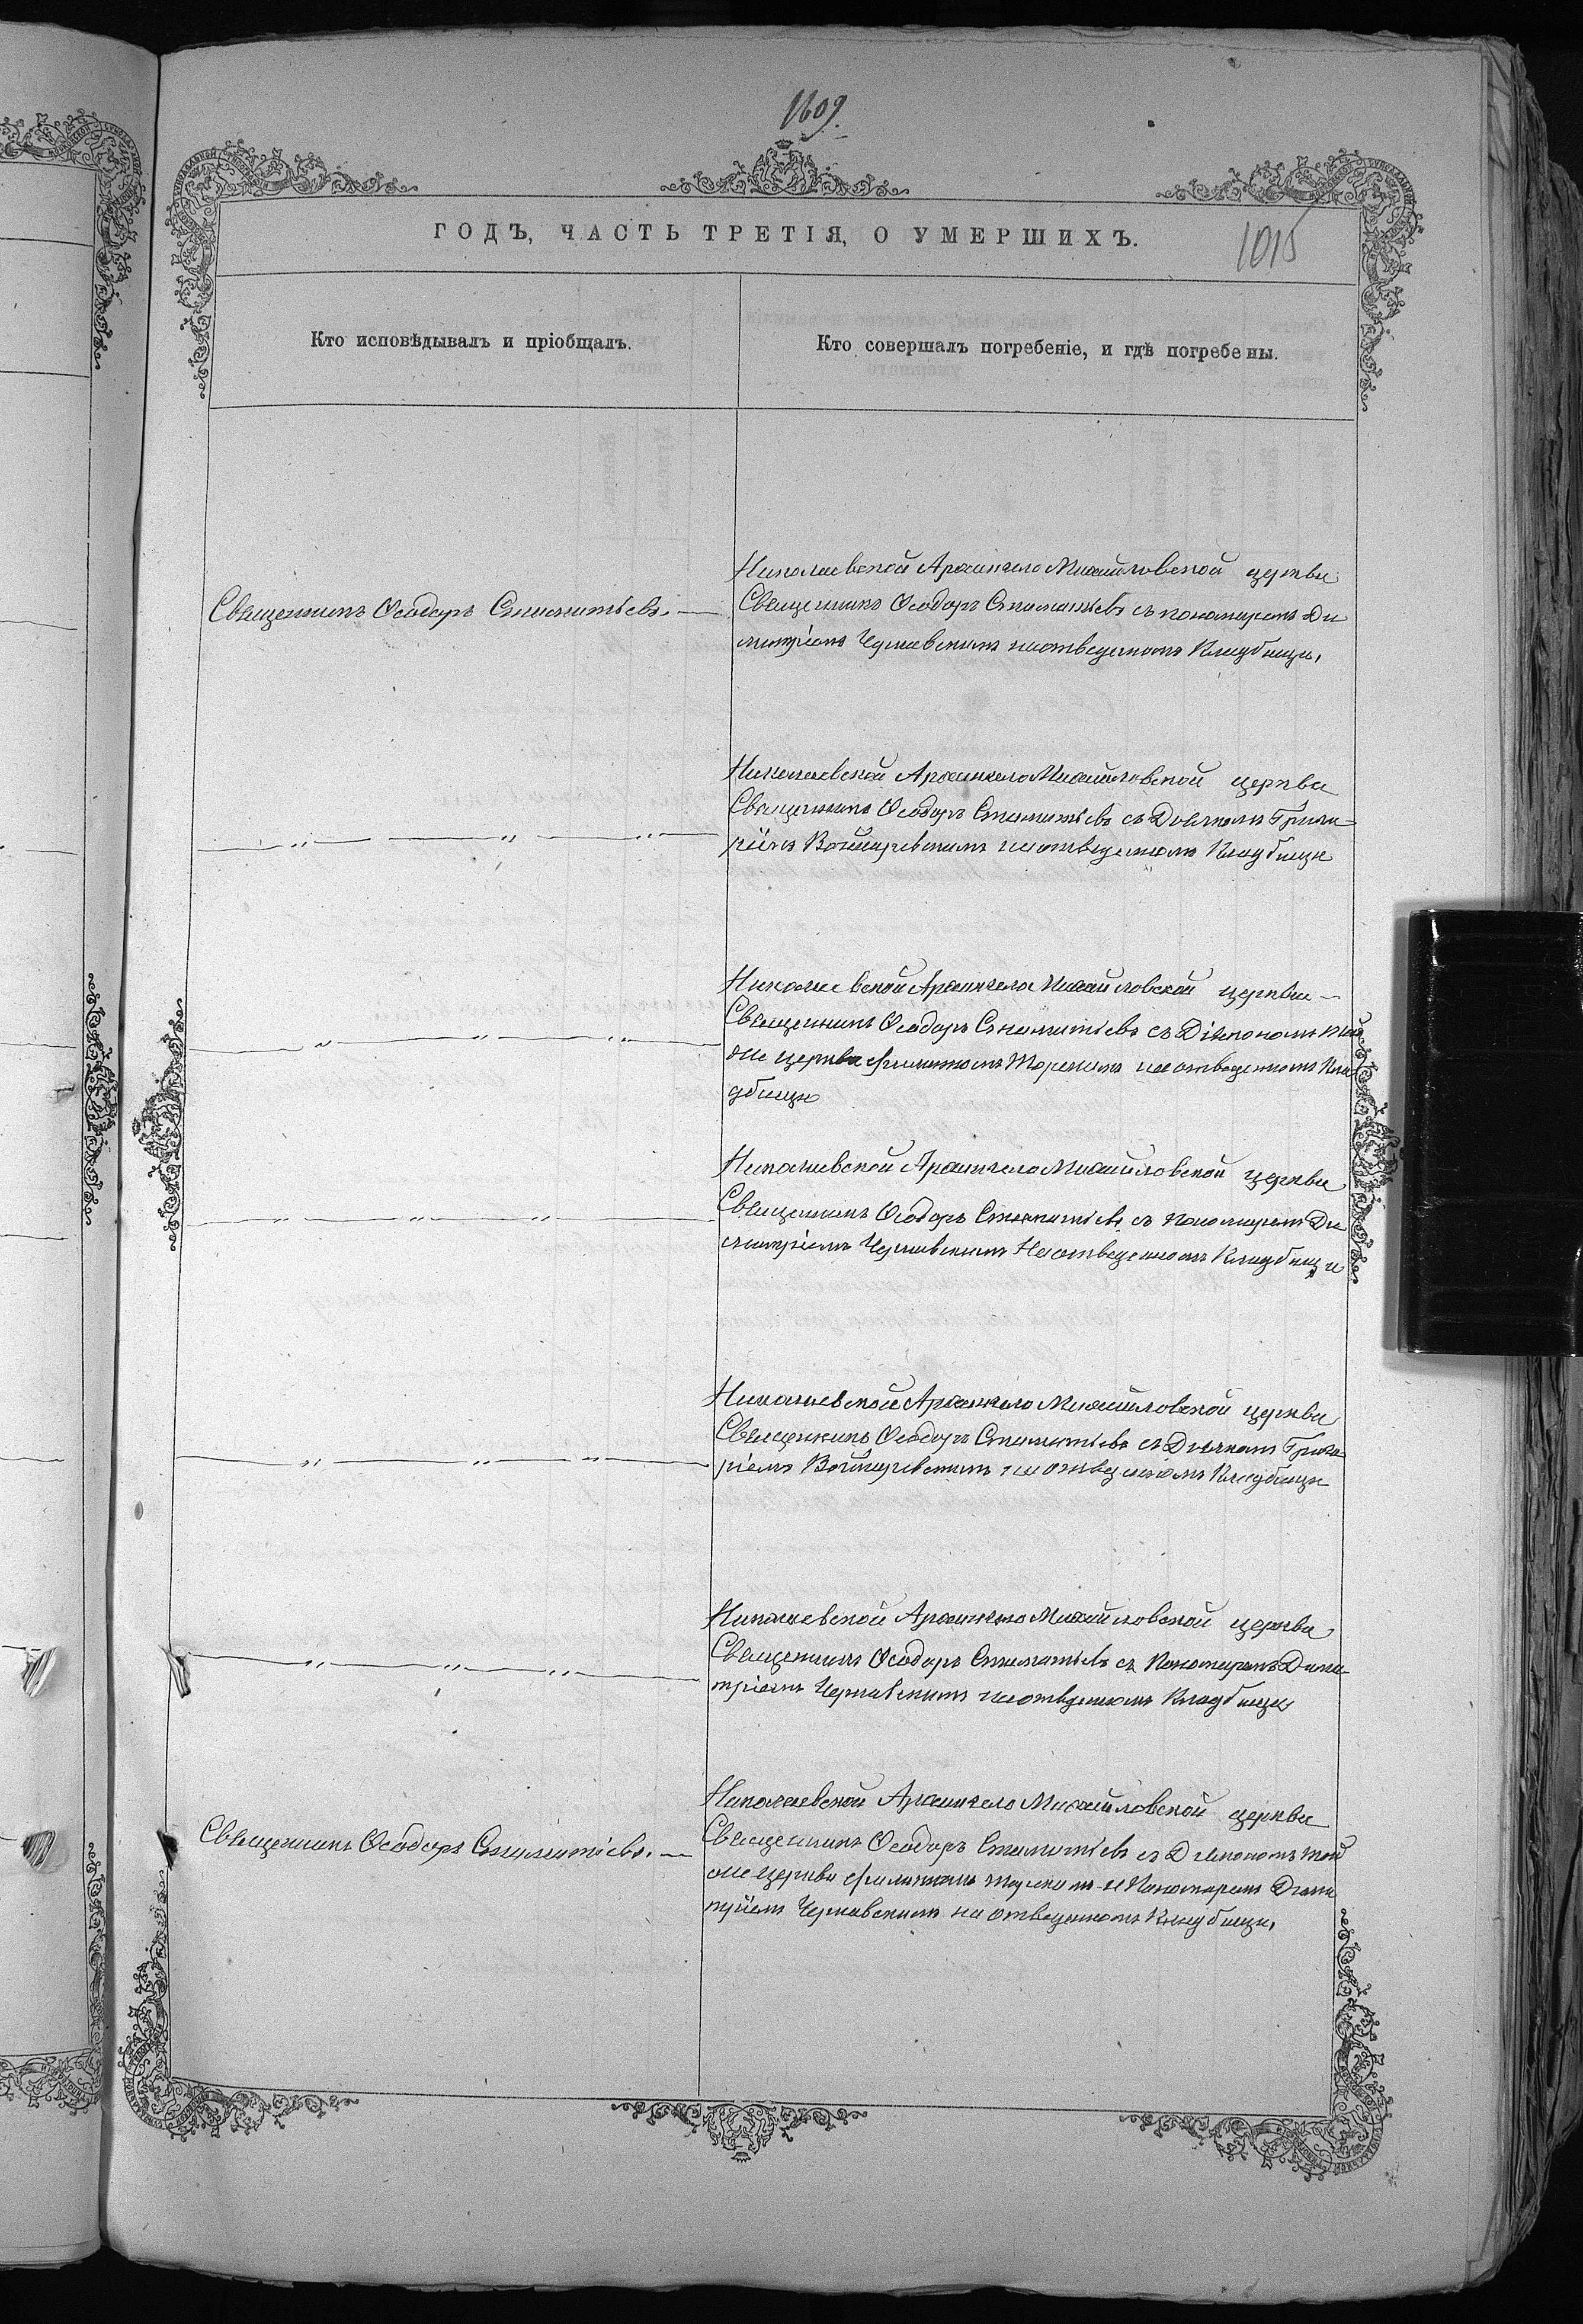 1609.
ГОДЪ, ЧАСТЬ ТРЕТІЯ, О УМЕРШИХЪ.
1015
Кто исповѣдывалъ и пріобщалъ.
Кто совершалъ погребеніе, и гдѣ погребены.
Священникъ Ѳеодоръ Стаматіевъ. —
Николаевской Архангело Михайловской церкви
Священникъ Ѳеодоръ Стаматіевъ съ пономаремъ Ди
митріемъ Чернавскимъ на отведенномъ Кладбищи,
— „ — „ — „ —
Николаевской Архангело Михайловской церкви
Священникъ Ѳеодоръ Стаматіевъ съ Дьякомъ Григо-
ріемъ на отведенномъ Кладбищи
— „ — „ — „ —
Николаевской Архангело Михайловской церкви —
Священникъ Ѳеодоръ Стаматіевъ съ Діякономъ той
же церкви на отведенномъ Кла
дбищи
— „ — „ — „ —
Николаевской Архангело Михайловской церкви
Священникъ Ѳеодоръ Стаматіевъ съ Пономаремъ Ди
митріемъ Чернавскимъ На отведенномъ Кладбищи
— „ — „ — „ —
Николаевской Архангело Михайловской церкви
Священникъ Ѳеодоръ Стаматіевъ съ Дьякомъ Григо-
ріемъ на отведенномъ Кладбищи
— „ — „ — „ —
Николаевской Архангело Михайловской церкви
Священникъ Ѳеодоръ Стаматіевъ съ Пономаремъ Дими-
тріемъ Чернавскимъ на отведенномъ Кладбищи
Священникъ Ѳеодоръ Стаматіевъ. —
Николаевской Архангело Михайловской церкви
Священникъ Ѳеодоръ Стаматіевъ съ Діякономъ той
же церкви и Пономаремъ Дими
тріемъ Чернавскимъ на отведенномъ Кладбищи,